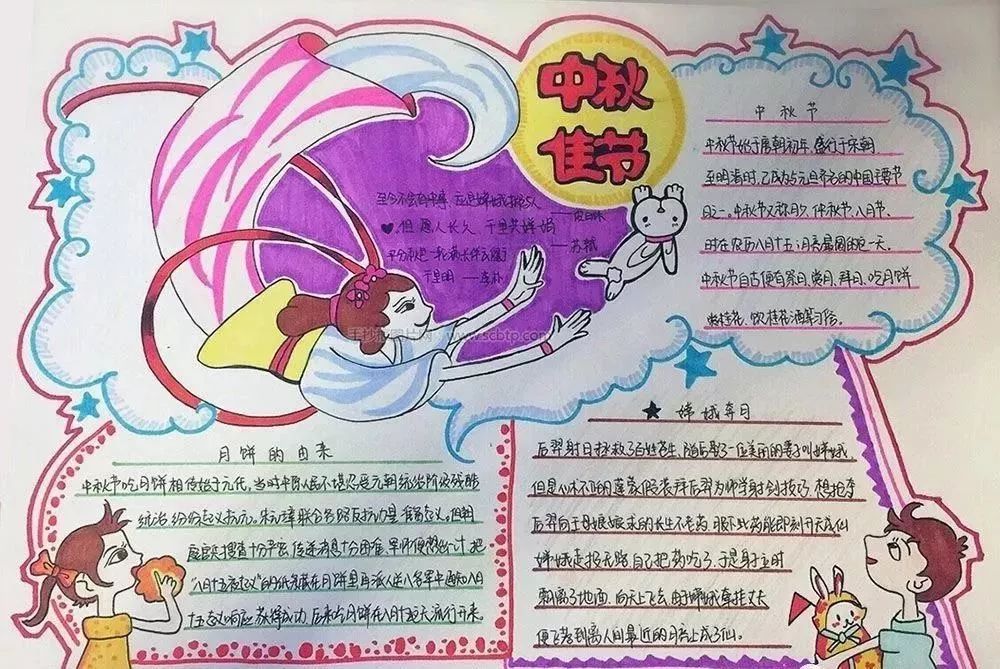 中秋
佳节
中秋节
中秋节始于唐朝初年,盛行于宋朝,
至明清时,已成为与元旦齐名的中国主要节
日之一。中秋节又称月夕、仲秋节、八月节,
时在农历八月十五,月亮最圆的这一天。
中秋节自古便有祭月、赏月、拜月、吃月饼
赏桂花、饮桂花酒等习俗。
至今不会
但愿人长久,千里共婵娟
——苏轼
手抄报图片网 www.scbtp.com
月饼的由来
中秋节吃月饼相传始于元代,当时中原人民不堪忍受元朝统治阶级残酷
统治,纷纷起义抗元。朱元璋联合各路反抗力量准备起义。但朝
庭官兵搜查十分严密,传递消息十分困难,军师便想出一计,把
"八月十五夜起义"的纸条藏在月饼里再派人送入各军中通知八月
十五起义响应,获得成功,后来月饼在八月十五天流行开来。
嫦娥奔月
后羿射日拯救了百姓苍生,随后娶了一位美丽的妻子叫嫦娥,
但是心术不正的蓬蒙假装拜后羿为师学射剑技巧,想抢夺
后羿向王母娘娘求的长生不老药,服下此药能即刻升天成仙
嫦娥走投无路,自己把药吃了,于是身立时
飘离了地面,向天上飞去,由于嫦娥牵挂丈夫
便飞落到离人间最近的月亮上成了仙。